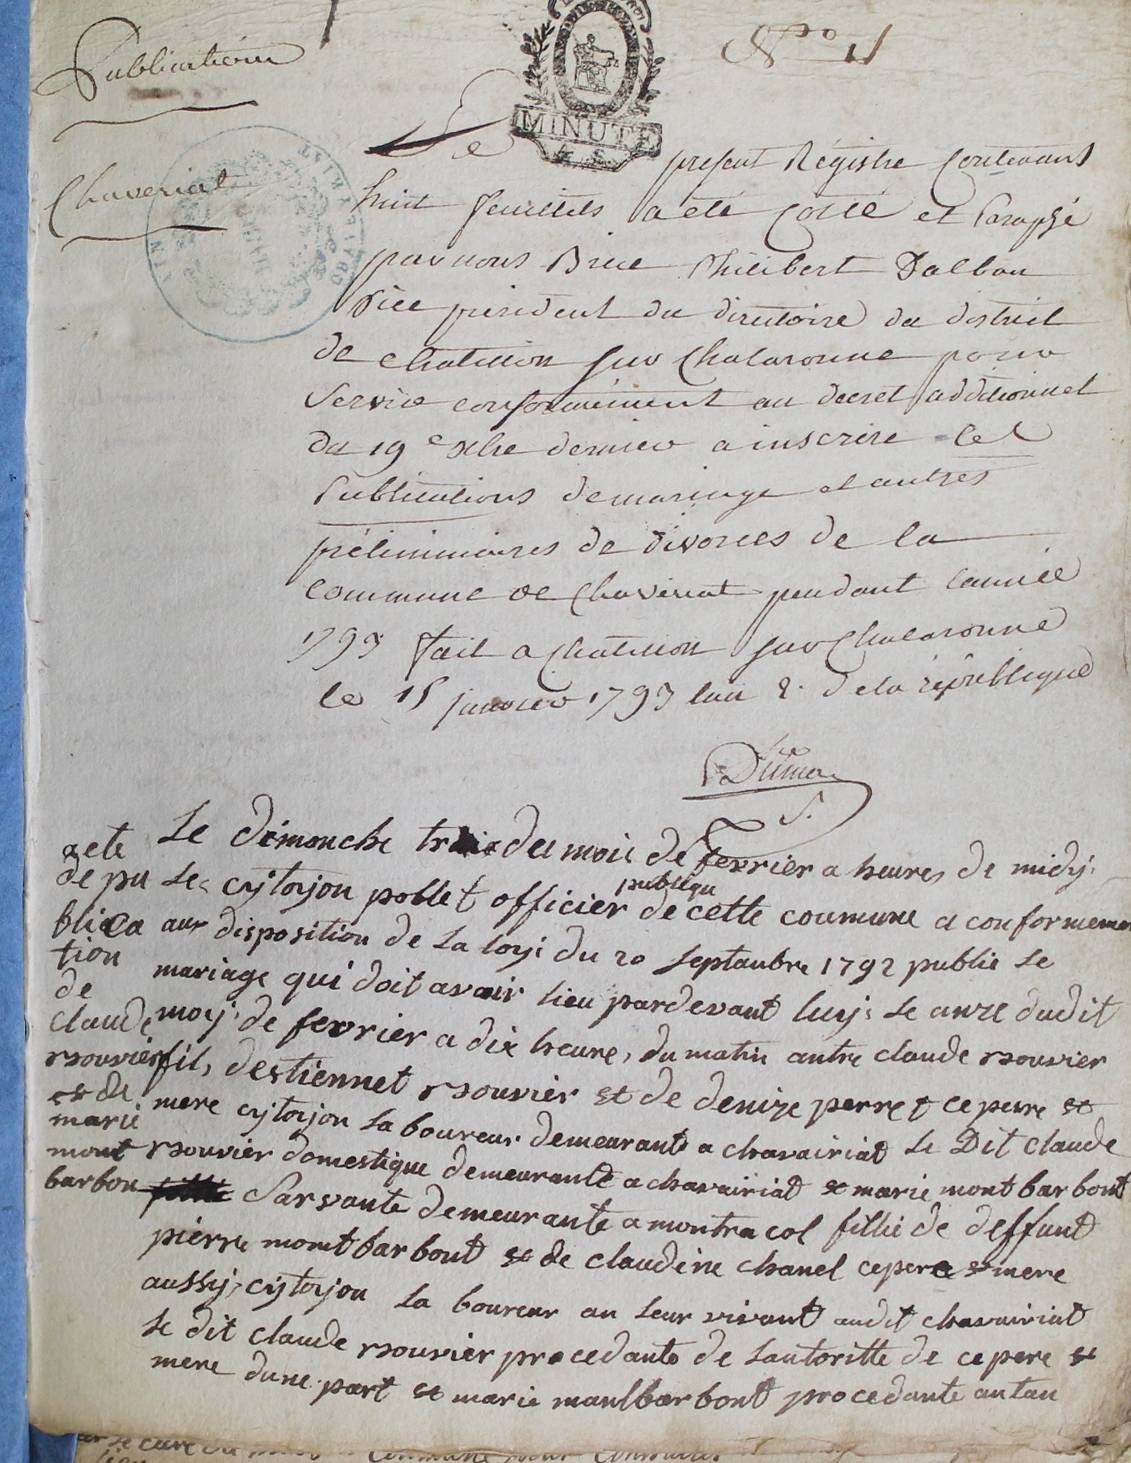 Publication
N.o 11
MINUTE
4 S.
Chaveriat
Le present Régistre Contenant
huit feuillets a été Cotté et Paraphé
par nous Brice Philibert Dalban
Vice président du directoire du district
de chatillon sur Chalaronne pour
Servir conformément au decret additionnel
du 19e xbre dernier a inscrire les
Publications de mariage et autres
préliminaires de divorces de la
commune de Chaveriat pendant lannée
1793 fait a Chatillon sur Chalaronne
le 15 janvier 1793 lan 2. de la république
Le dimanche trois du mois de fevrier a heures de midy
Le cytoyen poblet officier publiqu de cette coumune a conformement
aux disposition de La loy du 20 septambre 1792 publie le
mariage qui doit avoir lieu pardevant luy le anze dudit
moy de fevrier a dix heure, du matin antre claude rsouvier
fils destiennet rsouvier et de denize perret ce pere et
mere cytoyon La boureur demeurants a chavairiat Le Dit claude
rsouvier domestique demeurante a chavairiat et marie mont barbout
Sarvante demeurante a montracol fillie de deffunt
pierre mont barbout et de claudine chanel ce pere et mere
aussy cytoyon La boureur au leur vivant audit chavairiat
Le dit claude rsouvier procedante de Lautoritte de ce pere et
mere dune part et marie maulbarbout procedante autan
a ete
de pu
blica
tion
de
claude
rsouvier
et de
marie
mont
barbon